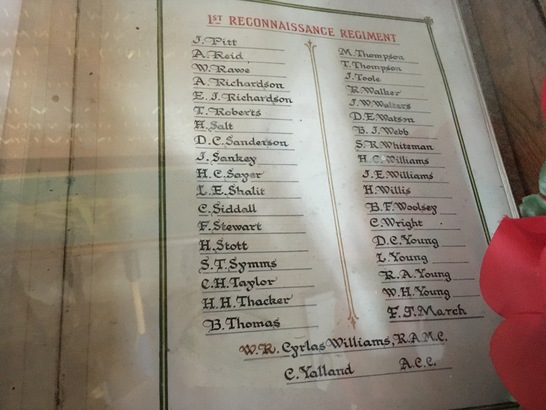 1ST RECONNAISSANCE REGIMENT
J. Pitt
A. Reid
W. Rawe
A. Richardson
E. J. Richardson
T. Roberts
H. Salt
D. C. Sanderson
J. Sankey
H. C. Sayer
L. E. Shalit
C. Siddall
F. Stewart
H. Stott
S. T. Symms
C. H. Taylor
H. H. Thacker
B. Thomas
M. Thompson
T. Thompson
J. Toole
R. Walker
J. W. Walters
D. E. Watson
B. J. Webb
S. R. Whiteman
H. C. Williams
J. E. Williams
H. Willis
B. F. Woolsey
C. Wright
D. C. Young
L. Young
R. A. Young
W. H. Young
F. J. March
W. R. Cyrlas Williams, R.A.M.C.
C. Yalland A.C.C.